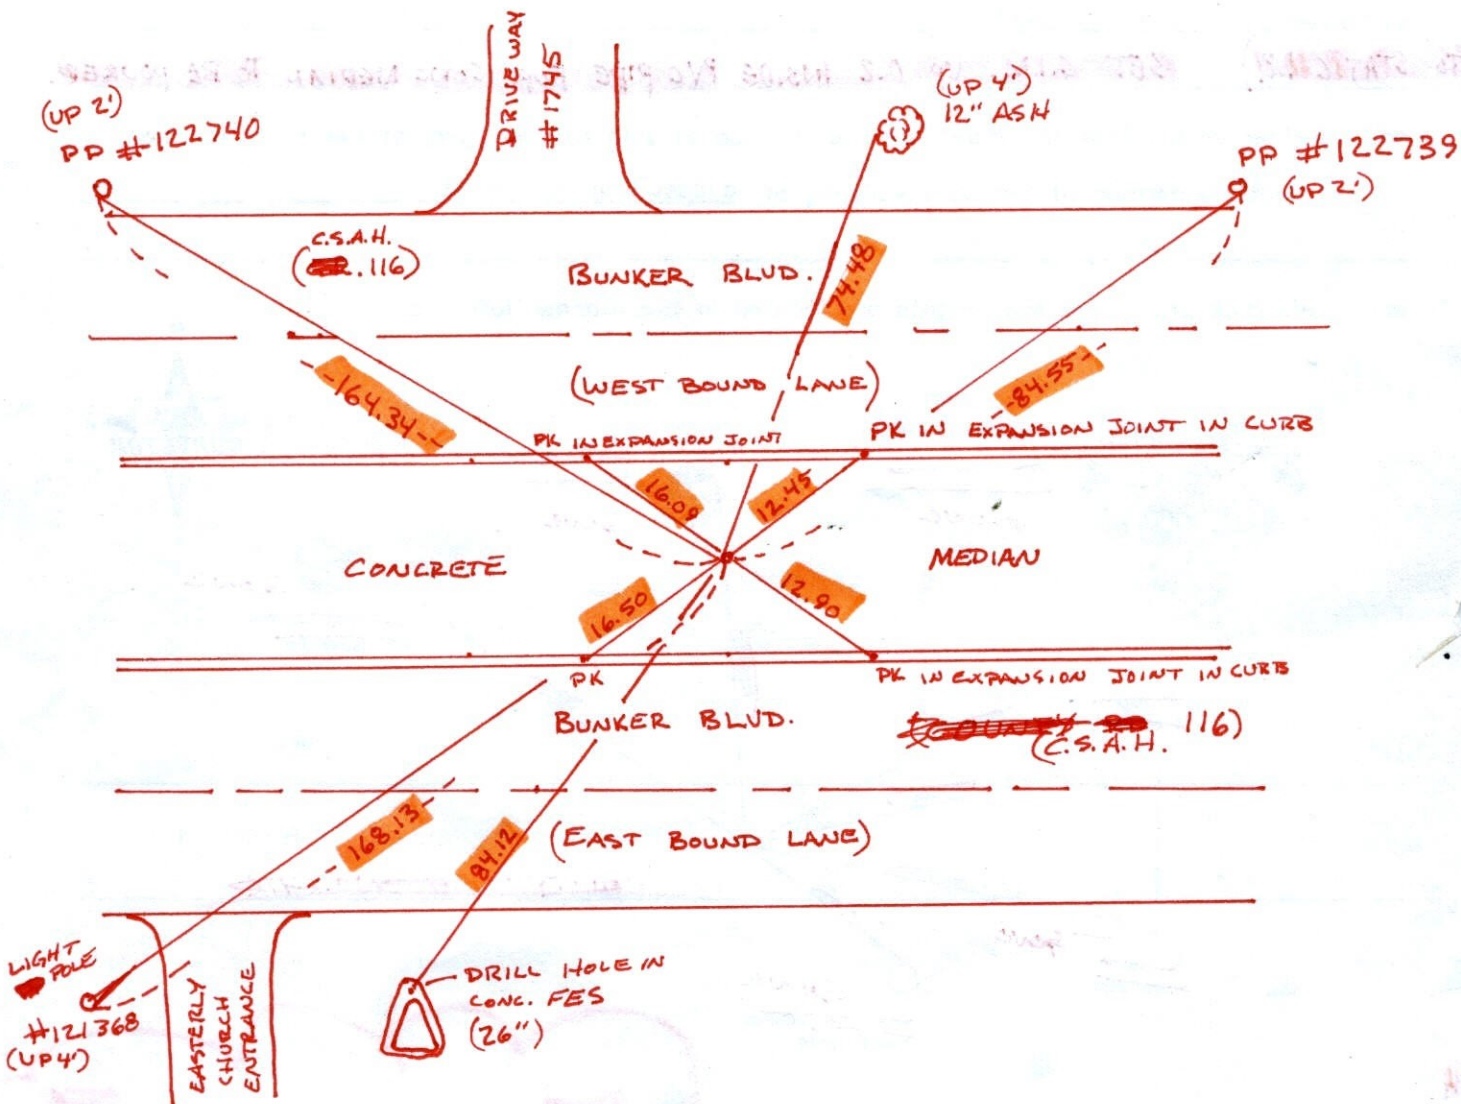 DRIVEWAY
#1745
(UP 2')
PP #122740
(UP 4')
12" ASH
PP #122739
(UP 2')
C.S.A.H.
( . 116)
BUNKER BLVD.
74.48
(WEST BOUND LANE)
-164.34-
-84.55-
PK IN EXPANSION JOINT
PK IN EXPANSION JOINT IN CURB
16.09
12.45
CONCRETE
MEDIAN
16.50
12.90
PK
PK IN EXPANSION JOINT IN CURB
BUNKER BLVD.
(COUNTY RD 116)
(C.S.A.H.
168.13
84.12
(EAST BOUND LANE)
LIGHT
POLE
#121368
(UP 4')
EASTERLY
CHURCH
ENTRANCE
DRILL HOLE IN
CONC. FES
(26")